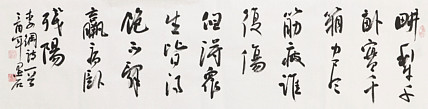 耕犁千
亩实千
箱力尽
筋疲谁
复伤
但得众
生皆得
饱不辞
羸病卧
残阳
李纲诗